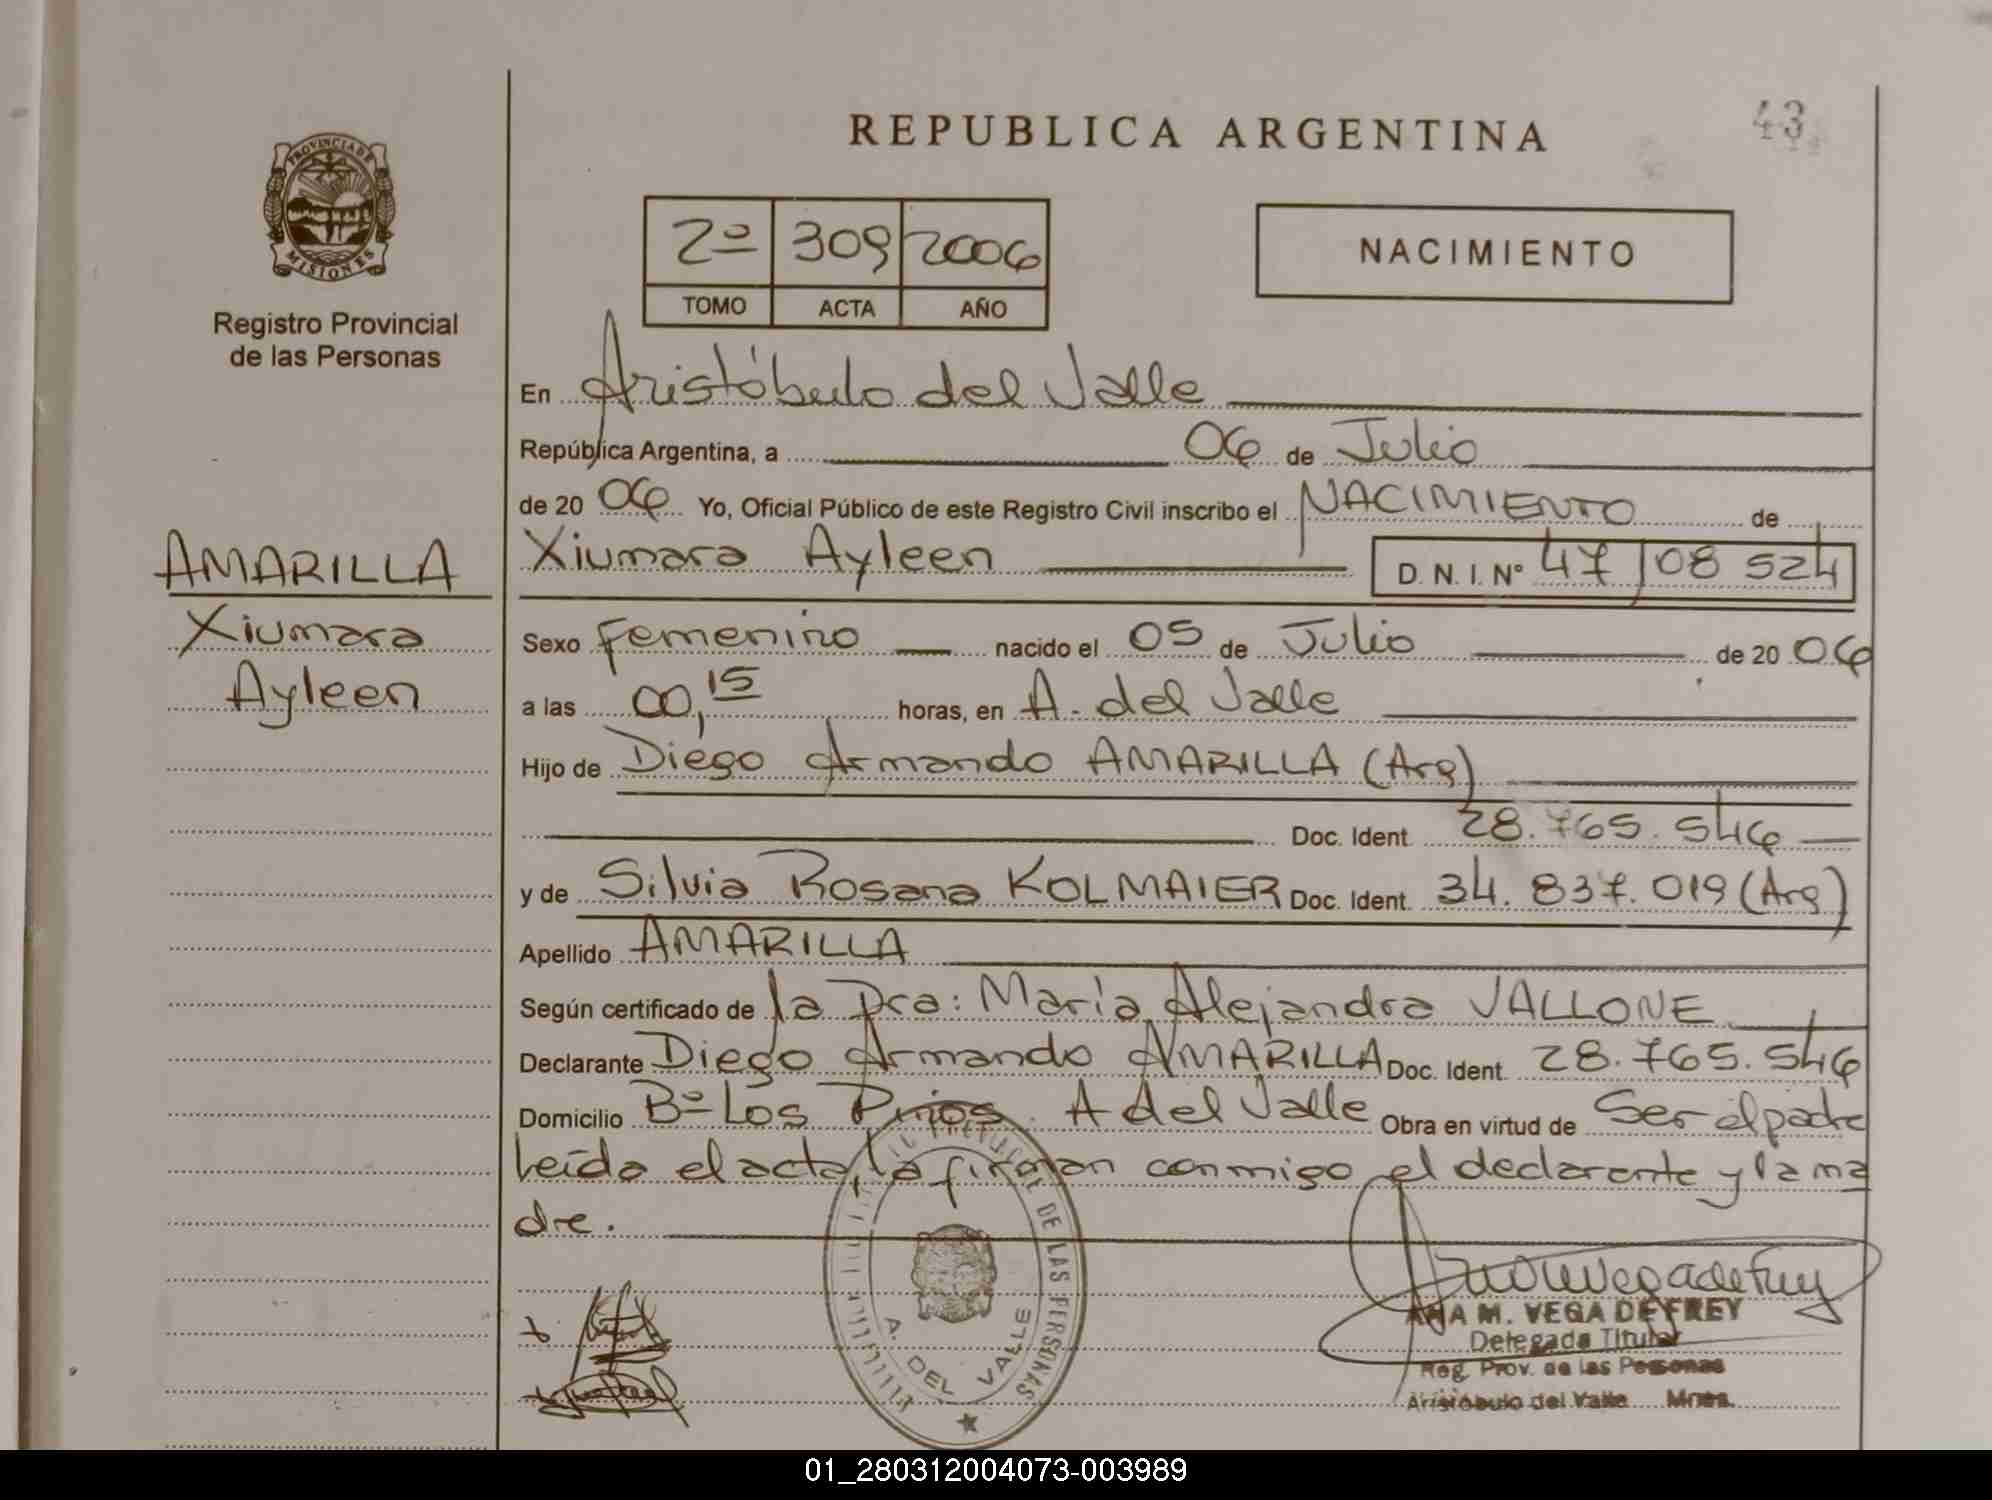 REPUBLICA ARGENTINA
43
PROVINCIA DE
MISIONES
Registro Provincial
de las Personas
2º 309 2006
TOMO ACTA AÑO
NACIMIENTO
En Aristóbulo del Valle
República Argentina, a 06 de Julio
de 20 06 Yo, Oficial Público de este Registro Civil inscribo el NACIMIENTO de
AMARILLA
Xiumara
Ayleen
Xiumara Ayleen D.N.I. Nº 47 108 524
Sexo Femenino nacido el 05 de Julio de 20 06
a las 00,15 horas, en A. del Valle
Hijo de Diego Armando AMARILLA (Arg)
Doc. Ident. 28.765.546
y de Silvia Rosana KOLMAIER Doc. Ident. 34.837.019 (Arg)
Apellido AMARILLA
Según certificado de la Dra: María Alejandra VALLONE
Declarante Diego Armando AMARILLA Doc. Ident. 28.765.546
Domicilio Bº Los Pinos. A del Valle Obra en virtud de Ser el padre
Leída el acta, la firman conmigo el declarante y la ma
dre.
DE LAS PERSONAS
A. DEL VALLE
ANA M. VEGA DE FREY
Delegada Titular
Reg. Prov. de las Personas
Aristóbulo del Valle Mnes.
01_280312004073-003989